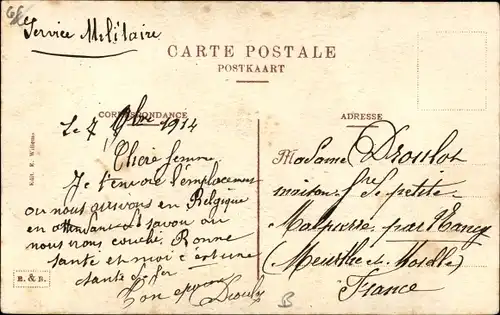 Service Militaire
CARTE POSTALE
POSTKAART
CORRESPONDANCE
ADRESSE
Le 7 9bre 1914
Chère femme
Je t'envoie l'emplacement
ou nous arrivons en Belgique
en attendant savou ou
nous nous couché. Bonne
santé et moi c'est une
santé de fer
Ton époux
Droulot
Madame Droulot
maison
Malpierre par Nancy
(Meurthe et Moselle)
France
Edit. E. Willems
R. & B.
B